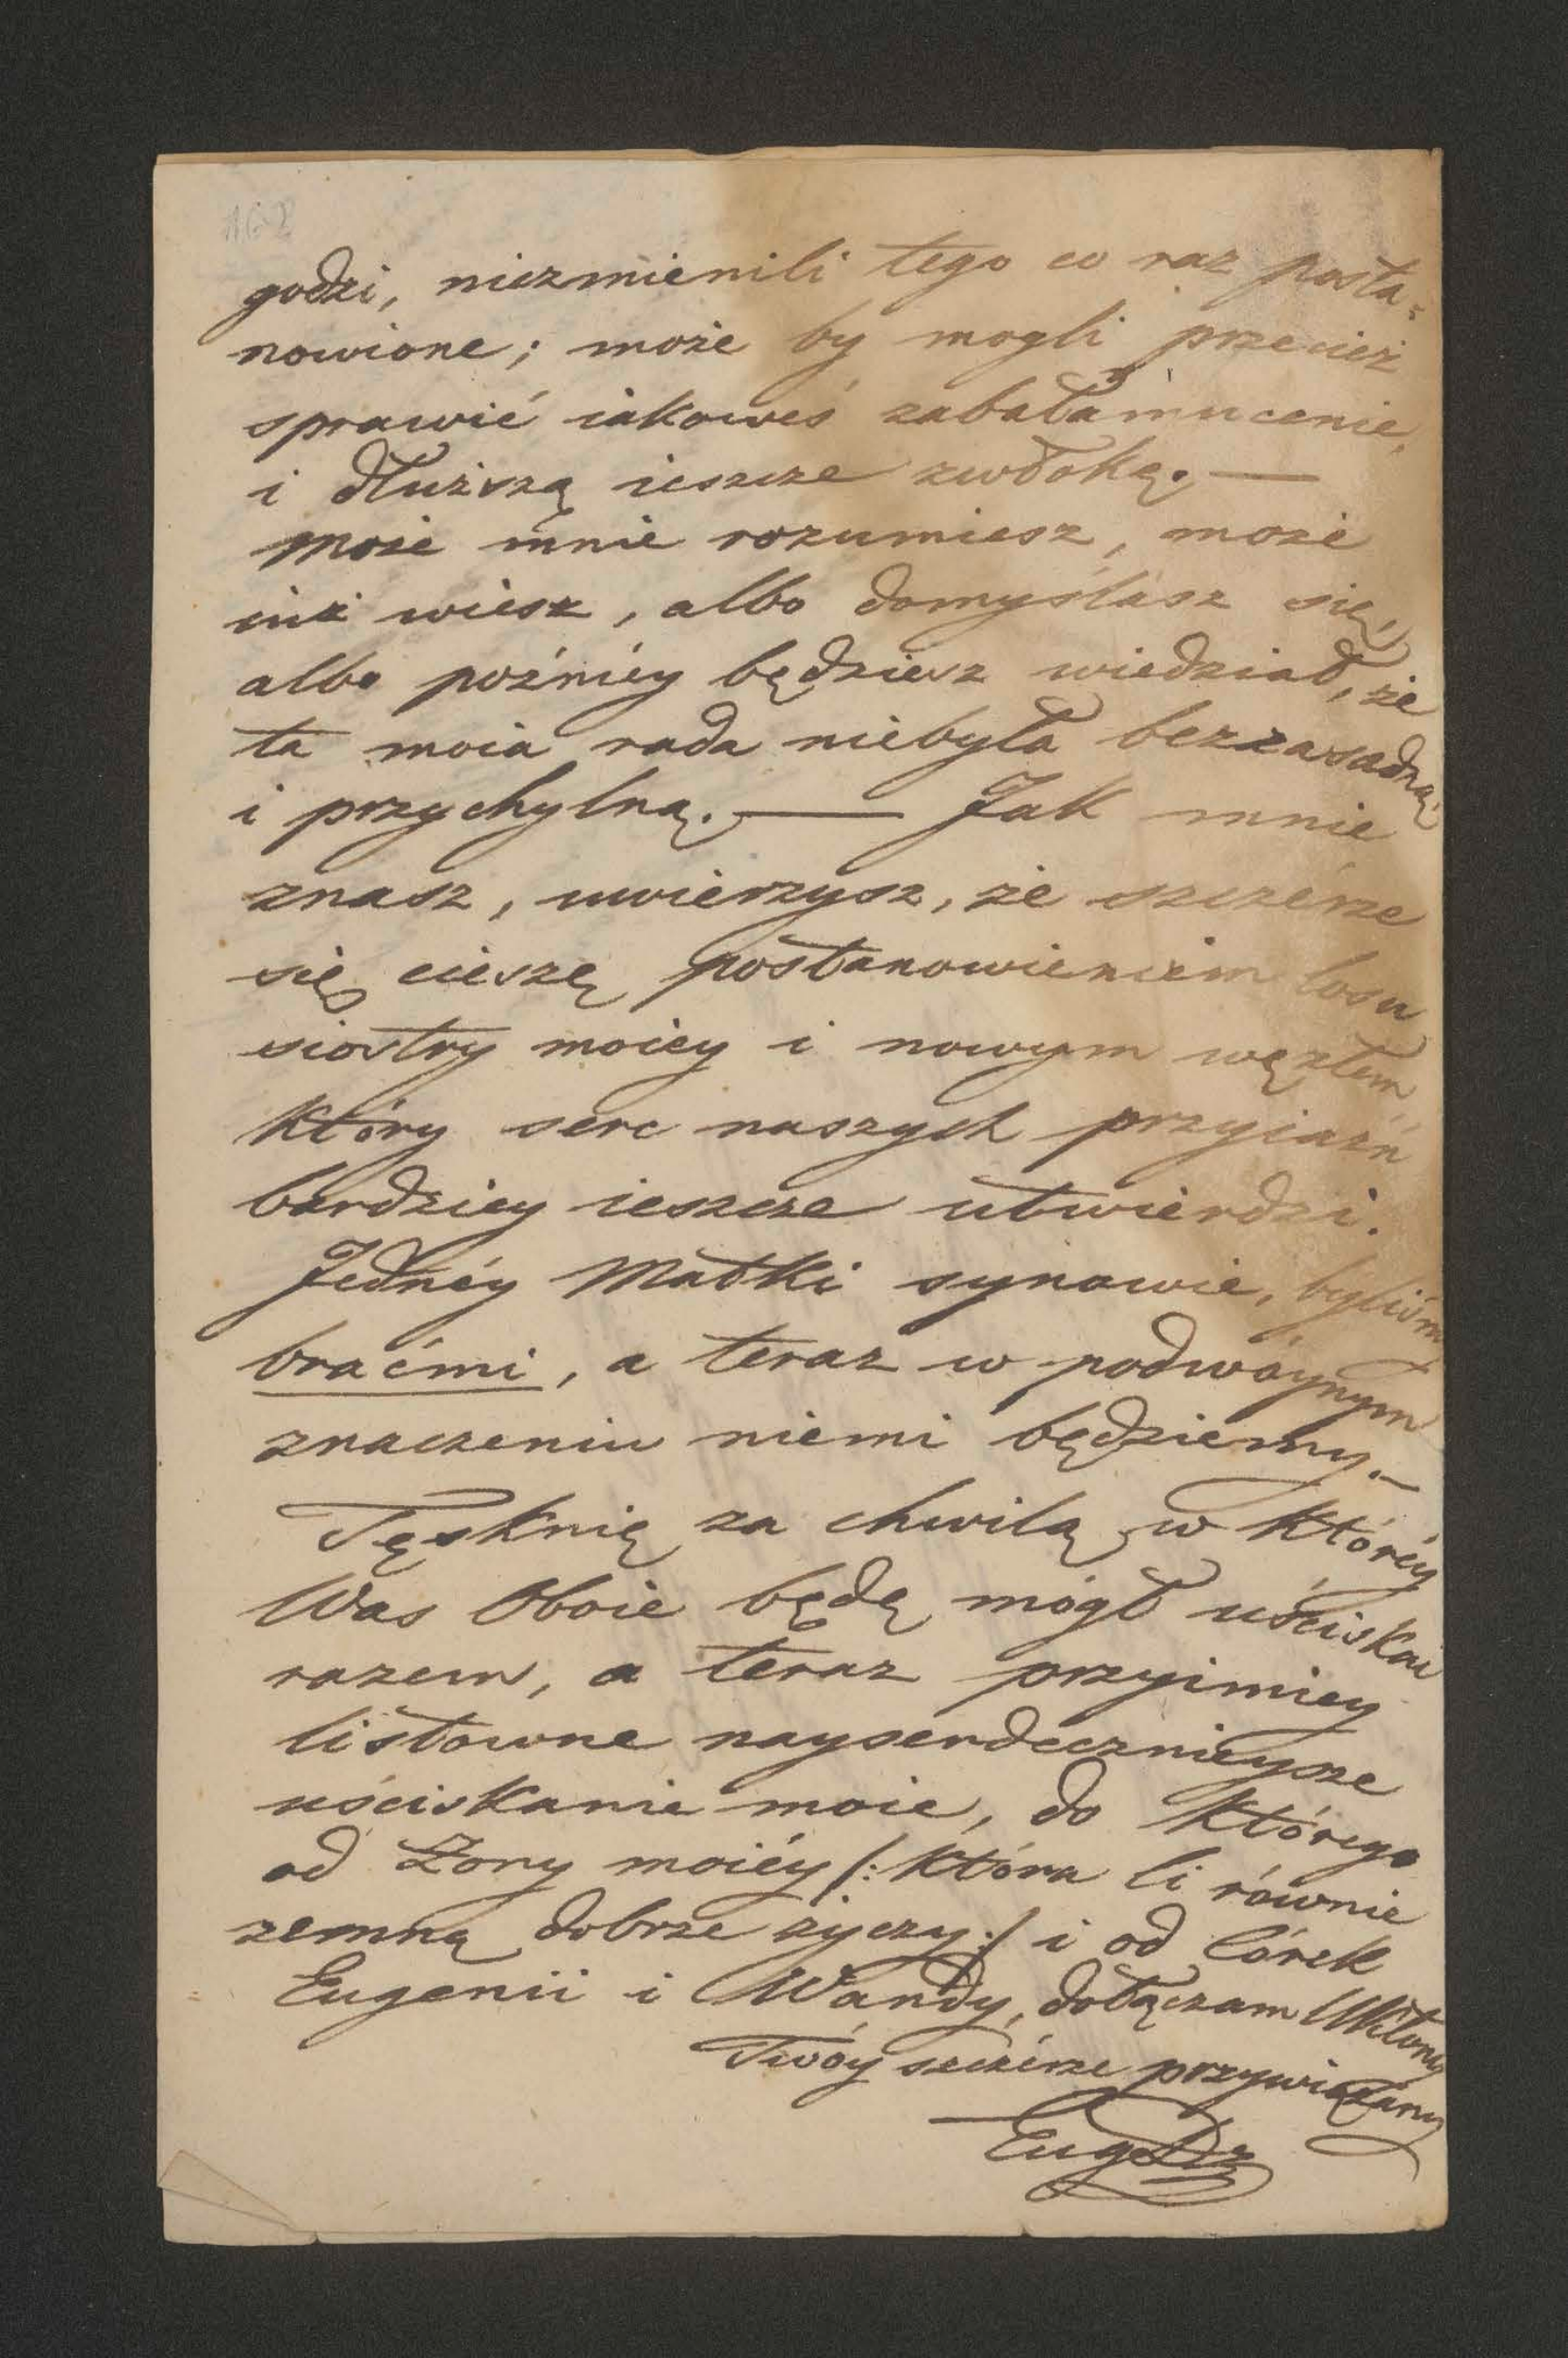 162
godzi, niezmienili tego co raz posta=
nowione; może by mogli przecież
sprawić iakoweś zabałamucenie,
i dłuższą ieszcze zwłokę. —
Może mnie rozumiesz, może
iuż wiesz, albo domyślasz się,
albo poźniéy będziesz wiedział, że
ta moia rada niebyła bezzasadną
i przychylną. — Jak mnie
znasz, uwierzysz, że szczérze
się cieszę postanowieniem losu
siostry moiéy i nowym węzłem,
który serc naszych przyiaźń
bardziey ieszcze utwierdzi.
Jednéy Matki synowie, byliśmy
braćmi, a teraz w podwóynym
znaczeniu niemi będziemy. —
Tęsknię za chwilą, w któréy
Was Oboie będę mógł uściskać
razem, a teraz przyimiey
listowne nayserdecznieysze
uściskanie moie, do którego
od Żony moiéy /: która Ci równie
zemną dobrze życzy :/ i od Córek
Eugenii i Wandy, dołączam Ukłony
Twóy szczérze przywiązany
Eug Dz